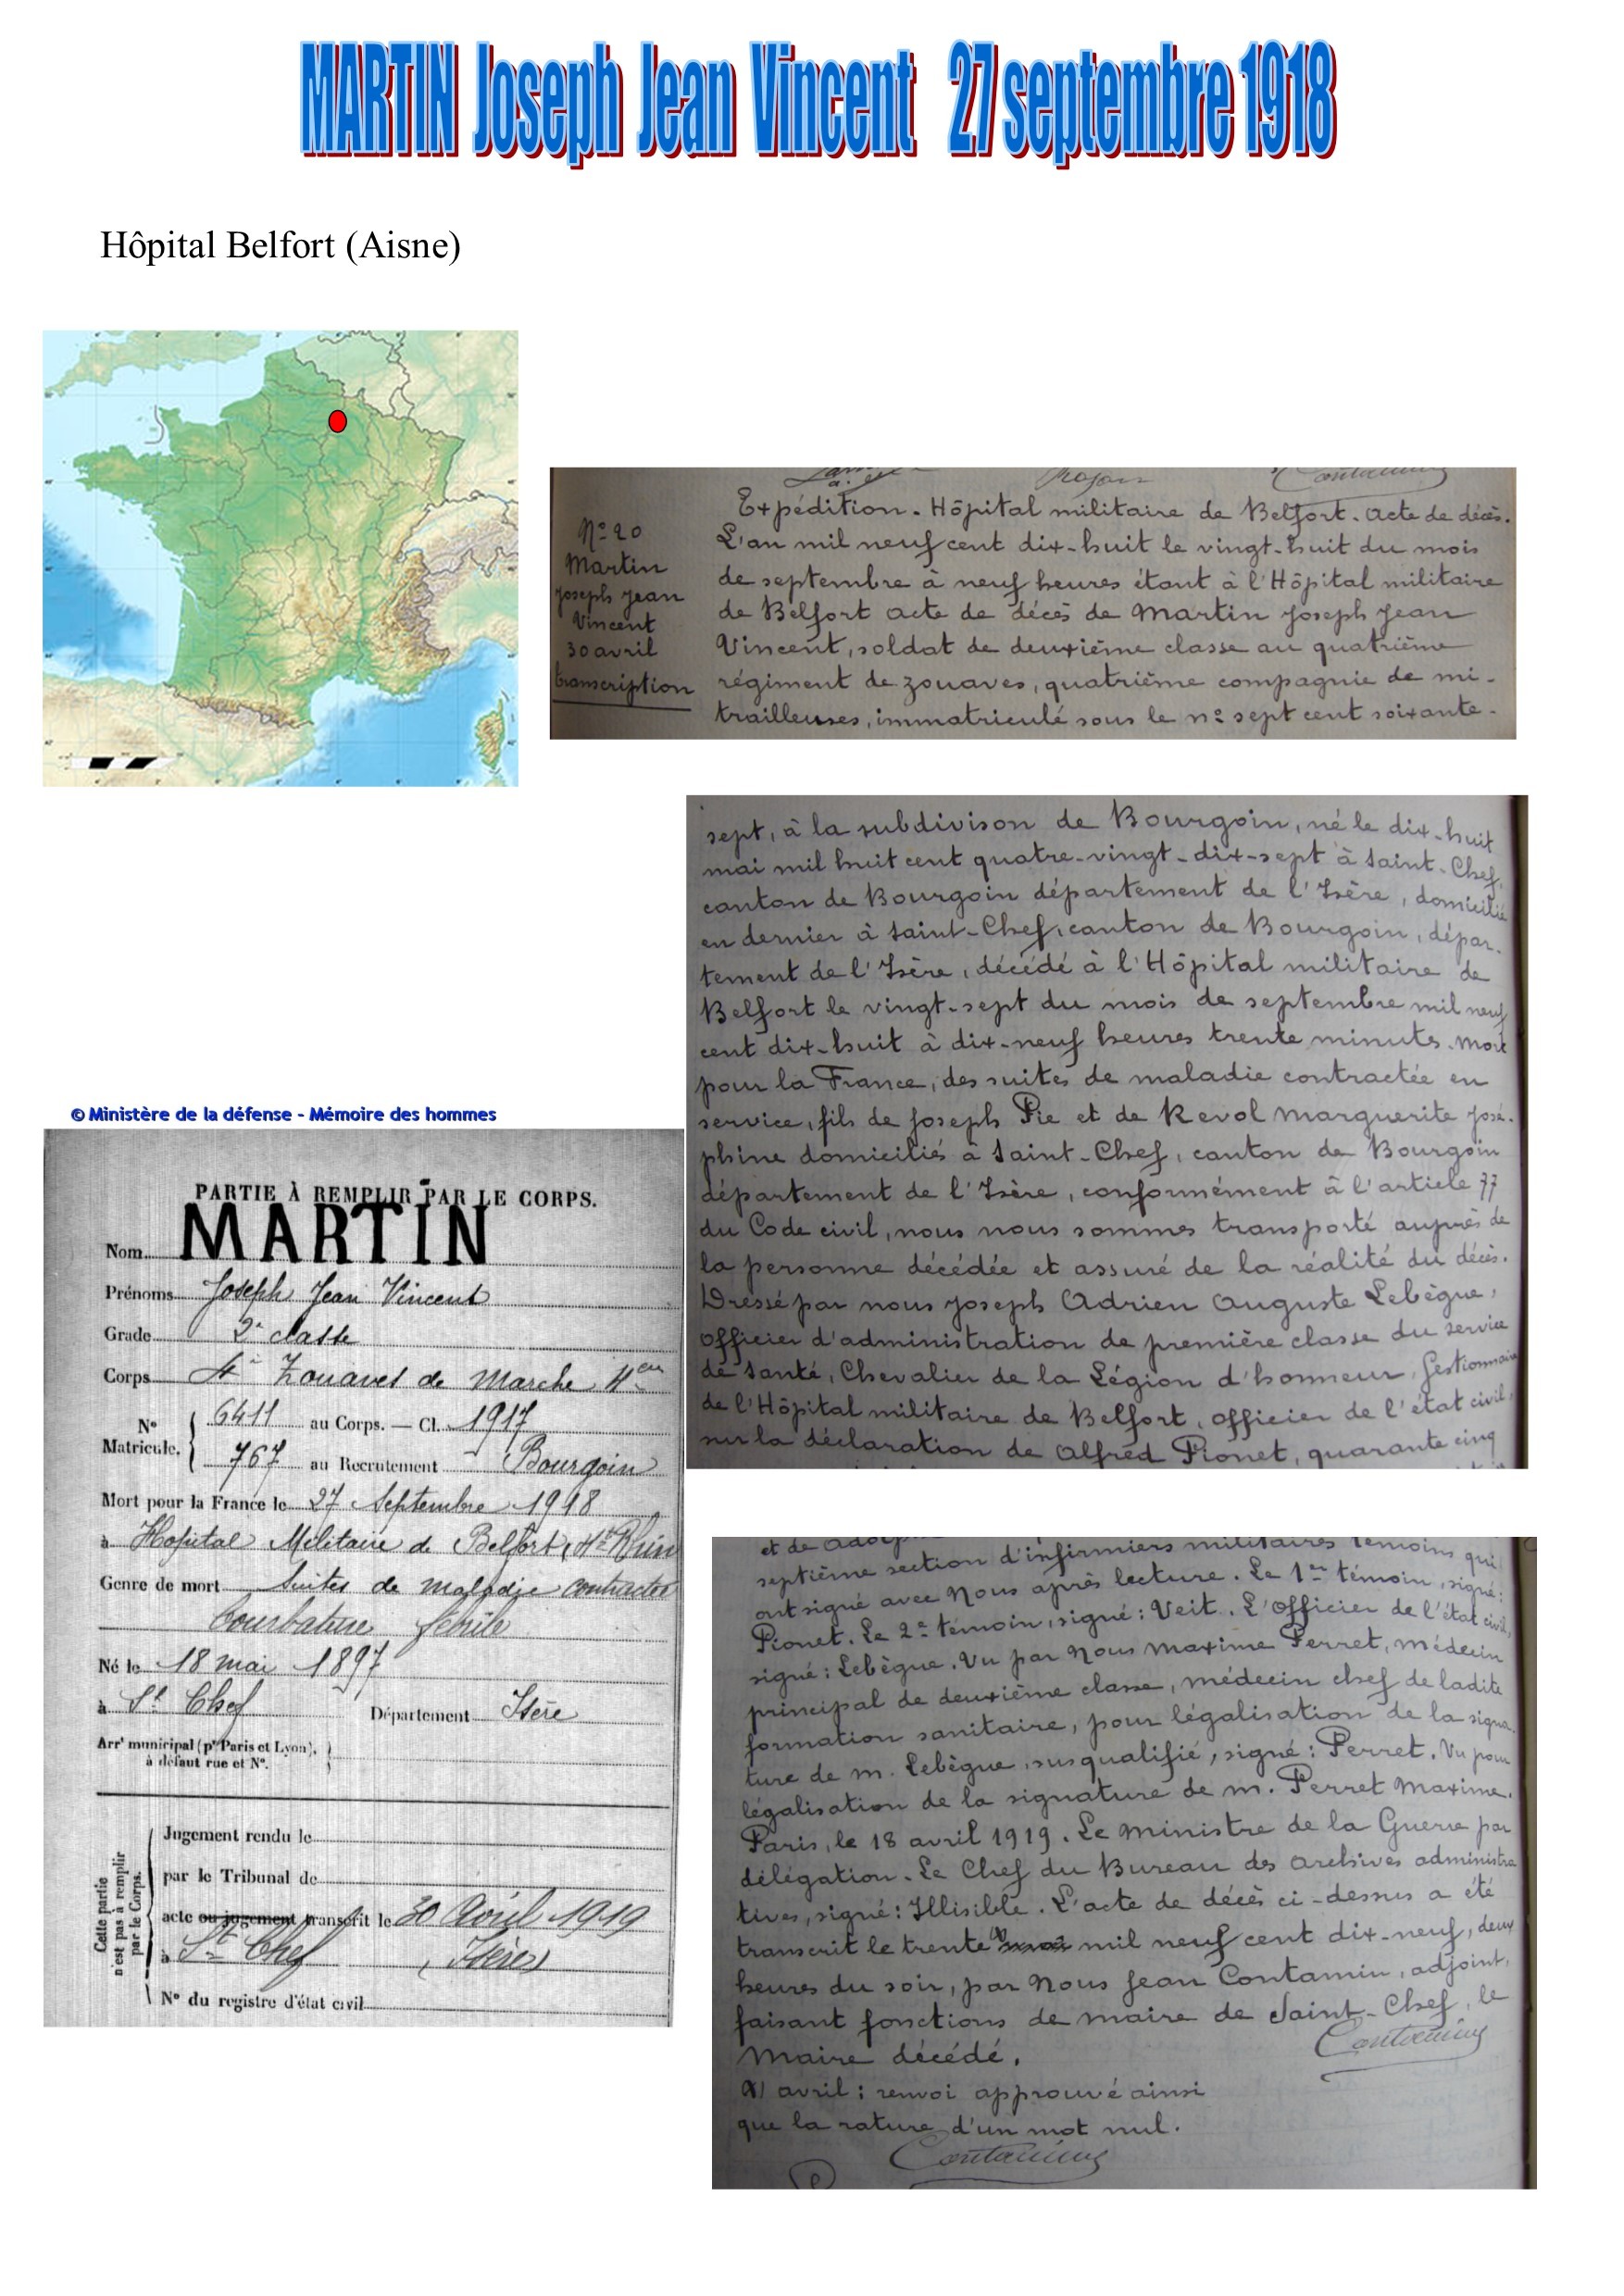 MARTIN Joseph Jean Vincent 27 septembre 1918
Hôpital Belfort (Aisne)
Expédition. Hôpital militaire de Belfort. Acte de décès.
N° 20
Martin
Joseph Jean
Vincent
30 avril
transcription
L'an mil neuf cent dix-huit le vingt-huit du mois
de septembre à neuf heures étant à l'Hôpital militaire
de Belfort acte de décès de Martin Joseph Jean
Vincent, soldat de deuxième classe au quatrième
régiment de zouaves, quatrième compagnie de mi-
trailleuses, immatriculé sous le n° sept cent soixante-
sept, à la subdivison de Bourgoin, né le dix-huit
mai mil huit cent quatre-vingt-dix-sept à Saint-Chef,
canton de Bourgoin département de l'Isère, domicilié
en dernier à Saint-Chef, canton de Bourgoin, dépar-
tement de l'Isère, décédé à l'Hôpital militaire de
Belfort le vingt-sept du mois de septembre mil neuf
cent dix-huit à dix-neuf heures trente minutes. Mort
pour la France, des suites de maladie contractée en
service, fils de Joseph Pie et de Revol Marguerite José-
phine domiciliés à Saint-Chef, canton de Bourgoin
département de l'Isère, conformément à l'article 77
du Code civil, nous nous sommes transporté auprès de
la personne décédée et assuré de la réalité du décès.
Dressé par nous Joseph Adrien Auguste Lebègue,
officier d'administration de première classe du service
de santé, Chevalier de la Légion d'honneur, Gestionnaire
de l'Hôpital militaire de Belfort, officier de l'état civil,
sur la déclaration de Alfred Pionet, quarante cinq
© Ministère de la défense - Mémoire des hommes
PARTIE À REMPLIR PAR LE CORPS.
Nom MARTIN
Prénoms Joseph Jean Vincent
Grade 2e classe
Corps 4e Zouaves de Marche
N° Matricule. 6411 au Corps. — Cl. 1917
767 au Recrutement Bourgoin
Mort pour la France le 27 Septembre 1918
à Hopital Militaire de Belfort, Ht Rhin
Genre de mort Suites de maladie
Courbature fébrile
Né le 18 mai 1897
à St Chef Département Isère
Arrt municipal (pr Paris et Lyon),
à défaut rue et N°.
Cette partie
n'est pas à remplir
par le Corps.
Jugement rendu le
par le Tribunal de
acte ou jugement transcrit le 30 Avril 1919
à St Chef (Isère)
N° du registre d'état civil
et de
septième section d'infirmiers militaires témoins qui
ont signé avec Nous après lecture. Le 1er témoin, signé:
Pionet. Le 2e témoin, signé: Veit. L'Officier de l'état civil,
signé: Lebègue. Vu par Nous Maxime Perret, Médecin
principal de deuxième classe, médecin chef de ladite
formation sanitaire, pour légalisation de la signa-
ture de M. Lebègue, susqualifié, signé: Perret. Vu pour
légalisation de la signature de M. Perret Maxime.
Paris, le 18 avril 1919. Le Ministre de la Guerre par
délégation. Le Chef du Bureau des Archives administra
tives, signé: Illisible. L'acte de décès ci-dessus a été
transcrit le trente mil neuf cent dix-neuf, deux
heures du soir, par Nous Jean Contamin, adjoint,
faisant fonctions de maire de Saint-Chef, le
Maire décédé.
Contamin
avril: renvoi approuvé ainsi
que la rature d'un mot nul.
Contamin